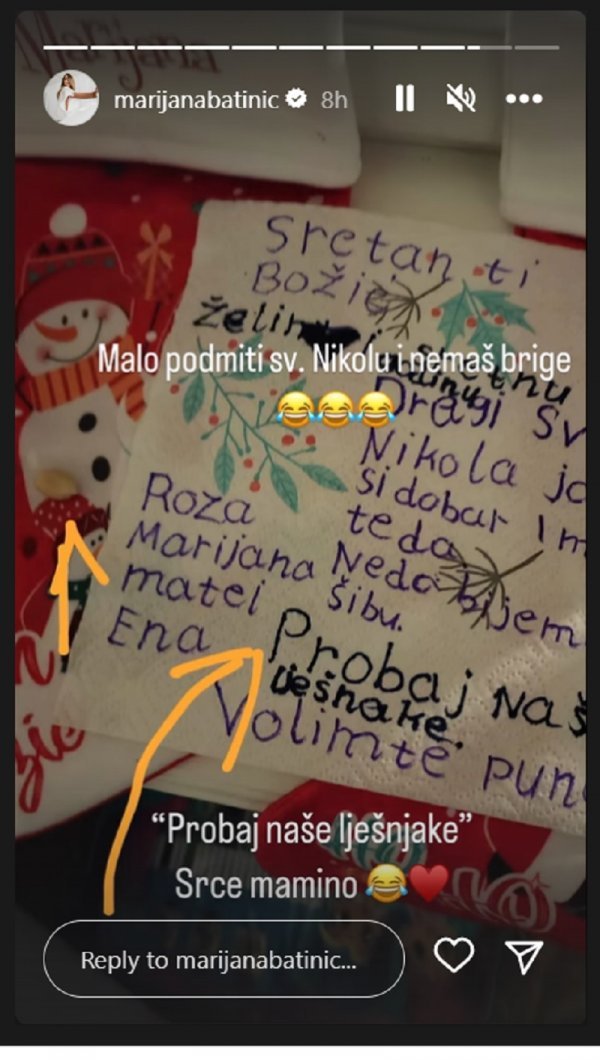 Marijana
marijanabatinic 8h
Sretan ti
Božić
želim i sretnu
Malo podmiti sv. Nikolu i nemaš brige
😂😂😂
Dragi Sv
Nikola ja
si dobar Im
Roza teda
Marijana Neda bijem
matei šibu.
Ena Probaj Naš
lješnake.
Volimte pun
“Probaj naše lješnjake”
Srce mamino 😂♥️
Reply to marijanabatinic...